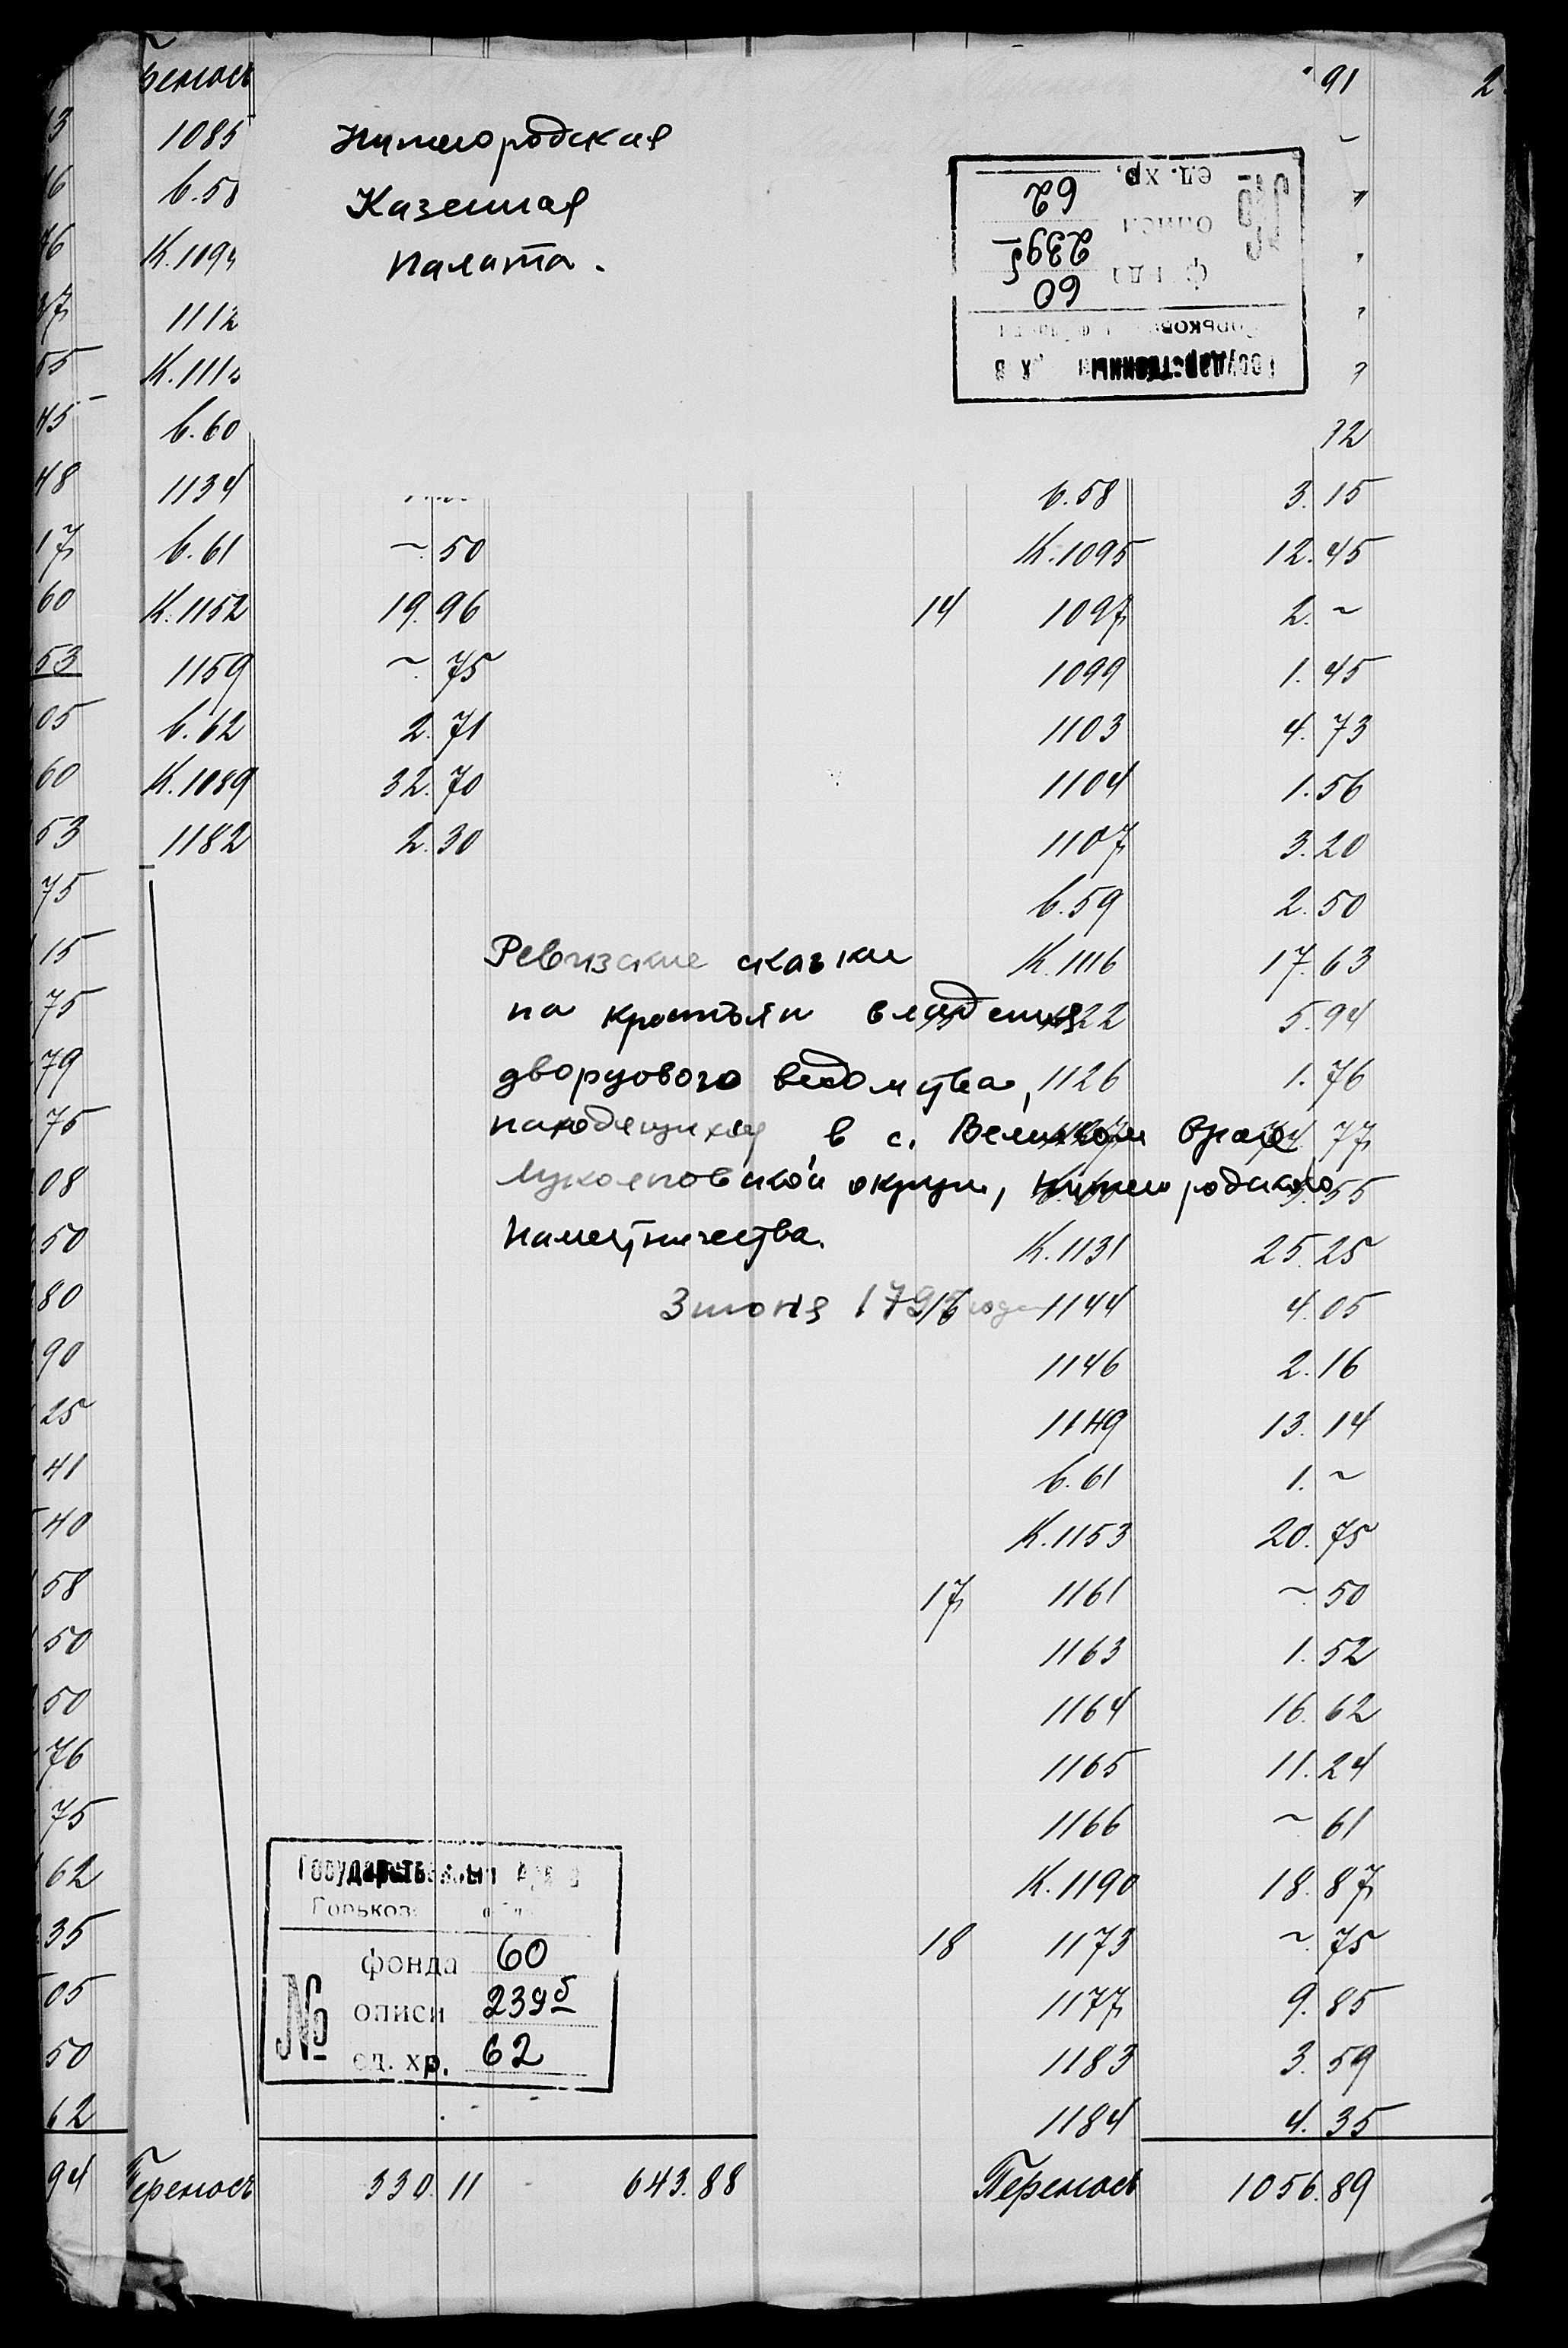 Переносъ 91 2
13 1085 ~
Нижегородская
16 b.58 "
Казенная
76 К.1094 "
Палата.
ед. хр. 62
описи 239б
фонда 60
№
Горьков
Государственный
1112 "
55 К.111 "
45 b.60 32
48 1134 b.58 3.15
17 b.61 ~.50 К.1095 12.45
60 К.1152 19.96 14 1097 2.~
53 1159 ~.75 1099 1.45
05 b.62 2.71 1103 4.73
60 К.1089 32.70 1104 1.56
53 1182 2.30 1107 3.20
75 b.59 2.50
15 К.1116 17.63
Ревизские сказки
75 1122 5.94
на крестьян владения
79 1126 1.76
дворцового ведомства,
75 77
находящихся в с. Великом Враге
08 55
Лукояновской округи, Нижегородского
50 К.1131 25.25
наместничества.
80 16 1144 4.05
3 июня 179 года
90 1146 2.16
25 1149 13.14
41 b.61 1.~
40 К.1153 20.75
58 17 1161 ~.50
50 1163 1.52
50 1164 16.62
76 1165 11.24
75 1166 ~.61
62 К.1190 18.87
35 18 1173 ~.75
05 1177 9.85
50 1183 3.59
62 1184 4.35
Государственный Архив
Горьков
фонда 60
№ описи 239б
ед. хр. 62
94 Переносъ 330.11 643.88 Переносъ 1056.89